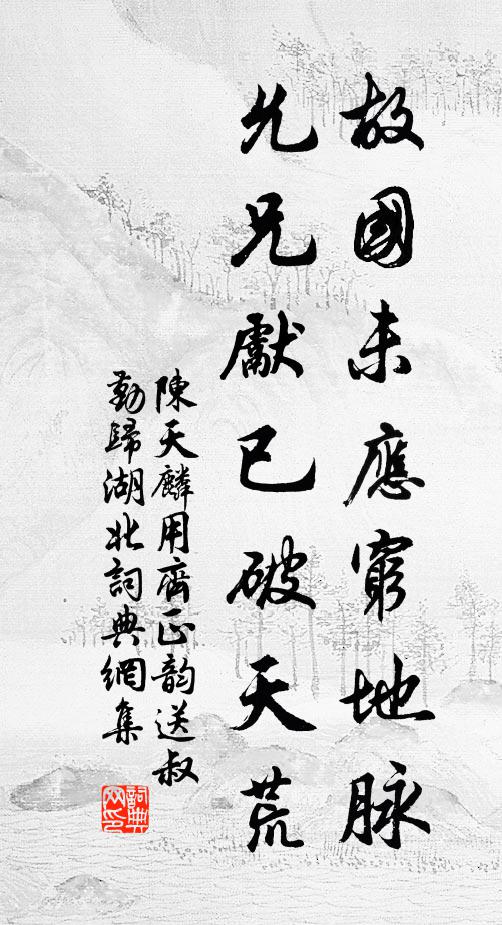 故國未應窮地脉
允兄獻已破天荒
陳天麟用齊正韵送叔
勤歸湖北詞典網集
詞典
网印